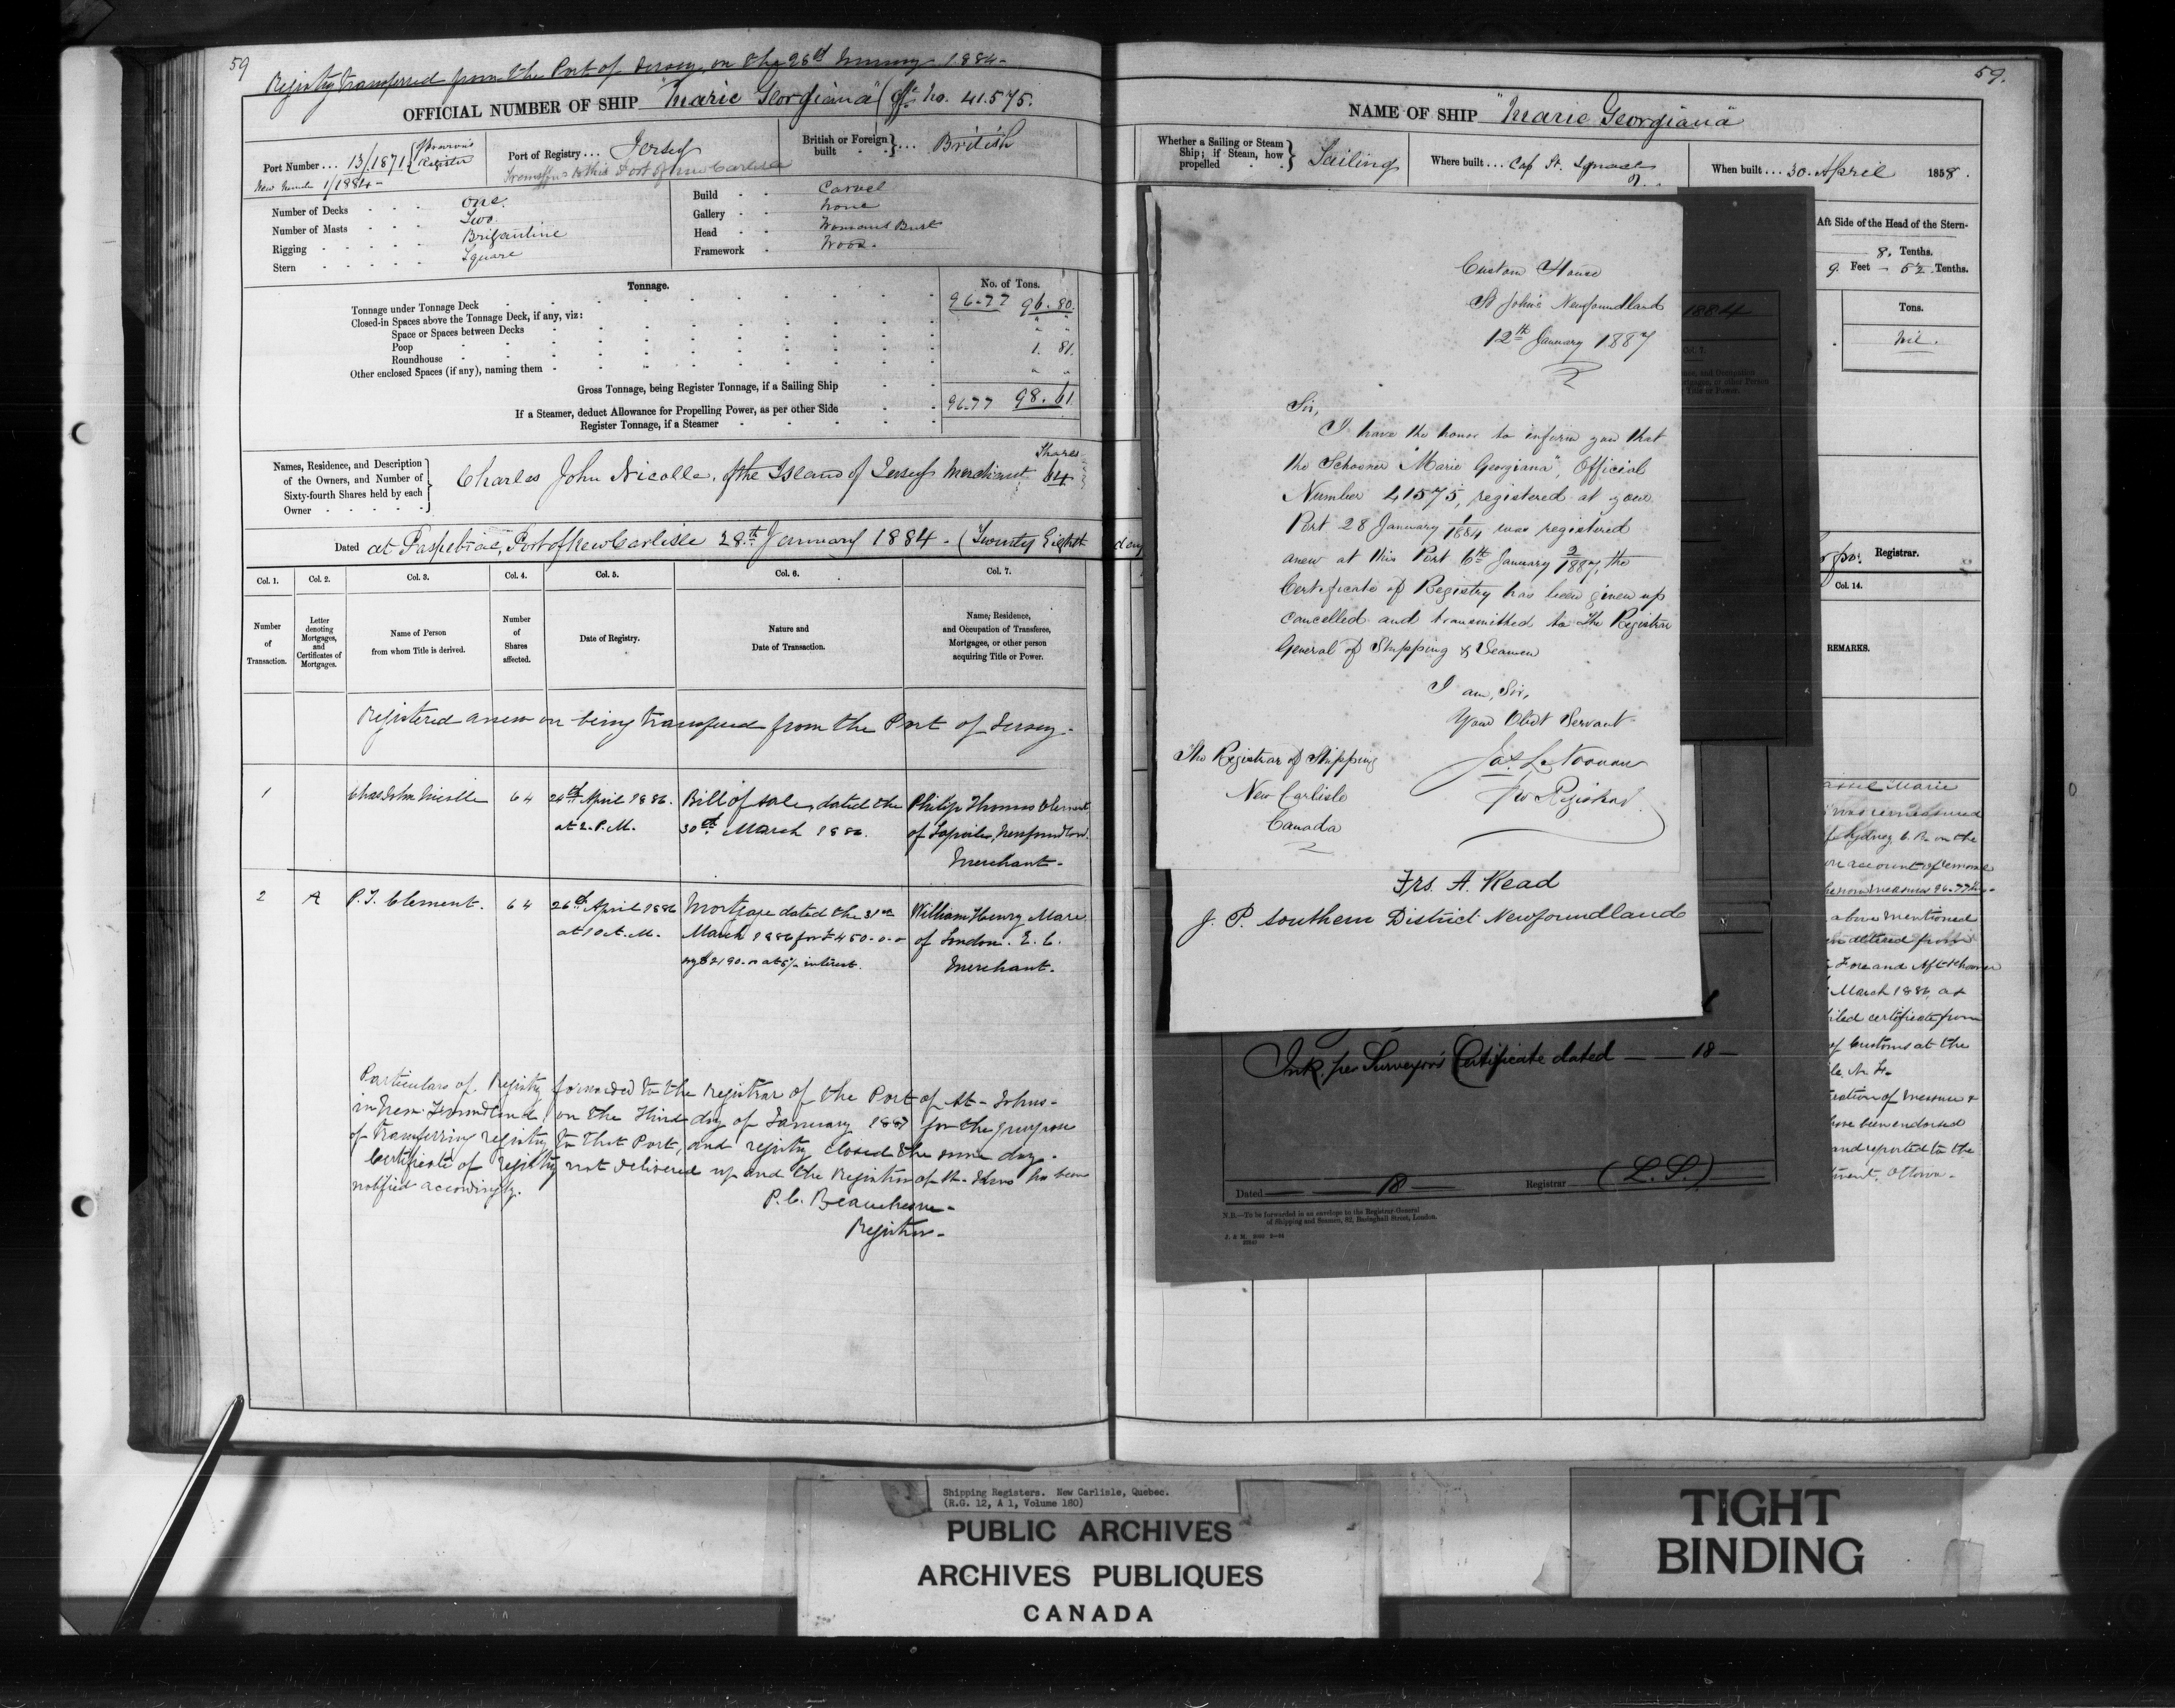 59
Registry transferred from the Port of Jersey, on the 28th January 1884-
OFFICIAL NUMBER OF SHIP "Marie Georgiana" (Off. No. 41.575.
Port Number ... 13/1871 { Previous Register
New Number 1/1884-
Port of Registry ... Jersey
Transffd to this Port of New Carlisle
British or Foreign built } ... British
Number of Decks - - - one.
Number of Masts - - - Two.
Rigging - - - Brigantine
Stern - - - Square
Build - - Carvel
Gallery - - None
Head - - Womans Bust
Framework - Wood.
Tonnage.
No. of Tons.
Tonnage under Tonnage Deck 96.77 96. 80.
Closed-in Spaces above the Tonnage Deck, if any, viz:
Space or Spaces between Decks " "
Poop " "
Roundhouse 1. 81.
Other enclosed Spaces (if any), naming them " "
Gross Tonnage, being Register Tonnage, if a Sailing Ship 96.77 98. 61
If a Steamer, deduct Allowance for Propelling Power, as per other Side
Register Tonnage, if a Steamer
Names, Residence, and Description
of the Owners, and Number of
Sixty-fourth Shares held by each
Owner
Shares
Charles John Nicolle, of the Island of Jersey Merchant 64
Dated at Paspebiac, Port of New Carlisle 28.th January 1884 - (Twenty Eighth day
Col. 1. Col. 2. Col. 3. Col. 4. Col. 5. Col. 6. Col. 7.
Number of Transaction.
Letter denoting Mortgages, and Certificates of Mortgages.
Name of Person from whom Title is derived.
Number of Shares affected.
Date of Registry.
Nature and Date of Transaction.
Name, Residence, and Occupation of Transferee, Mortgages, or other person acquiring Title or Power.
Registered anew on being transferred from the Port of Jersey-
1 Chas John Nicolle 64 24th April 1886. Bill of sale, dated the Philip Thomas Clement
at 2. P.M. 30th March 1886. of Lapoile, Newfoundland.
Merchant-
2 A P. T. Clement. 64 26th April 1886 Mortgage dated the 31st William Henry Mare
at 10 A.M. March 1886 for £450-0-0 of London. E. C.
$2190. at 5% interest. Merchant.
Particulars of Registry forwarded to the Registrar of the Port of St-Johns-
in New Foundland, on the Third day of January 1887 for the purpose
of transferring registry to that Port, and registry closed the same day.
Certificate of registry not delivered up and the Registrar of St. Johns has been
notified accordingly.
P. C. Beauchesne-
Registrar-
59.
NAME OF SHIP "Marie Georgiana"
Whether a Sailing or Steam Ship; if Steam, how propelled } Sailing
Where built ... Cap St. Ignace
When built ... 30. April 1858.
Aft Side of the Head of the Stern-
8. Tenths.
9. Feet - 52 Tenths.
Tons.
Nil.
Registrar.
Col. 14.
REMARKS.
Marie
was remeasured
Sydney, C. B. on the
on account of
now measures 96.77
above mentioned
altered from
Fore and Aft Schooner
March 1886, as
certificate from
of Customs at the
have been endorsed
and reported to the
Ottawa-
1884
Custom House
St John's Newfoundland
12th January 1887
Sir,
I have the honor to inform you that
the Schooner "Marie Georgiana", Official
Number 41575, registered at your
Port 28 January 1/1884 was registered
anew at this Port 6th January 2/1887, the
Certificate of Registry has been given up
cancelled and transmitted to The Registrar
General of Shipping & Seamen
I am, Sir,
Your Obdt Servant
Jas. L. Noonan
Registrar
The Registrar of Shipping
New Carlisle
Canada
Frs. A. Read
J. P. Southern District Newfoundland
Ink, per Surveyor's Certificate dated — — 18 —
Dated — — 18 Registrar — (L.S.)
N.B.—To be forwarded in an envelope to the Registrar-General
of Shipping and Seamen, 82, Basinghall Street, London.
Shipping Registers. New Carlisle, Quebec.
(R.G. 12, A 1, Volume 180)
PUBLIC ARCHIVES
ARCHIVES PUBLIQUES
CANADA
TIGHT
BINDING